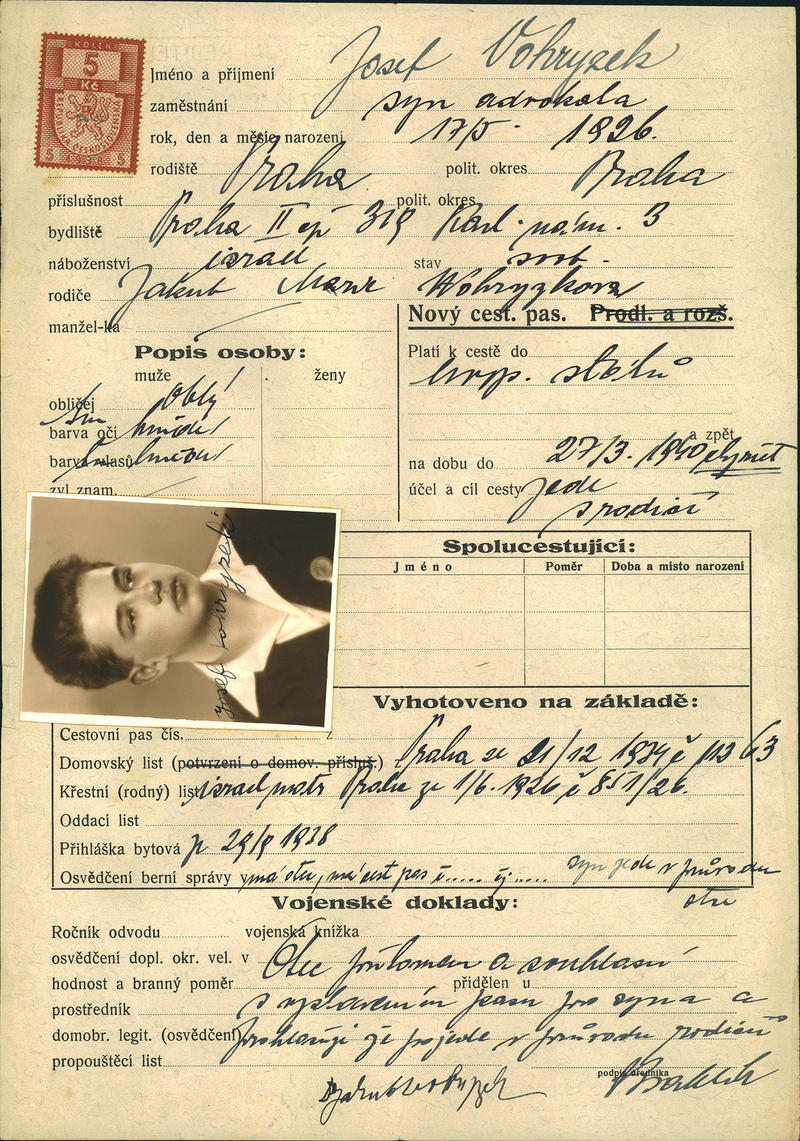 KOLEK
5
Kč
REPUBLIKA ČESKOSLOVENSKÁ
5 5
Jméno a příjmení Josef Vohryzek
zaměstnání syn advokata
rok, den a měsíc narození 17/5. 1926.
rodiště Praha polit. okres Praha
příslušnost polit. okres
bydliště Praha II čp 319 Karl. nám. 3
náboženství israel stav svob.
rodiče Jakub Marie Wohryzkova
manžel-ka
Nový cest. pas. Prodl. a rozš.
Popis osoby:
muže ženy
obličej oblý
barva očí hnědé
barva vlasů hnědé
zvl. znam.
Platí k cestě do
evrop. států
a zpět
na dobu do 27/3. 1940
účel a cíl cesty jede
s rodiči
Josef Vohryzek
Spolucestující:
Jméno Poměr Doba a místo narození
Vyhotoveno na základě:
Cestovní pas čís. z
Domovský list (potvrzení o domov. přísluš.) Praha ze 21/12 1934 č
Křestní (rodný) list israel matr Praha ze 1/6. 1926 č 851/26.
Oddací list
Přihláška bytová p 29/9 1938
Osvědčení berní správy v má otec, má cest pas č..... čj..... syn jede v průvodu
otce
Vojenské doklady:
Ročník odvodu vojenská knížka
osvědčení dopl. okr. vel. v Otec přítomen a souhlasí
hodnost a branný poměr přidělen u
prostředník s vystavením pasu pro syna a
domobr. legit. (osvědčení) prohlašuje že pojede v průvodu rodičů
propouštěcí list
podpis úředníka
Jakub Vohryzek